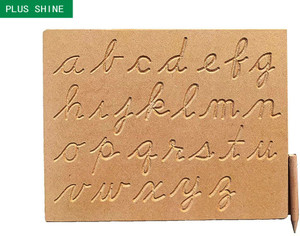 PLUS SHINE
a b c d e f g
h i j k l m n
o p q r s t u
v w x y z